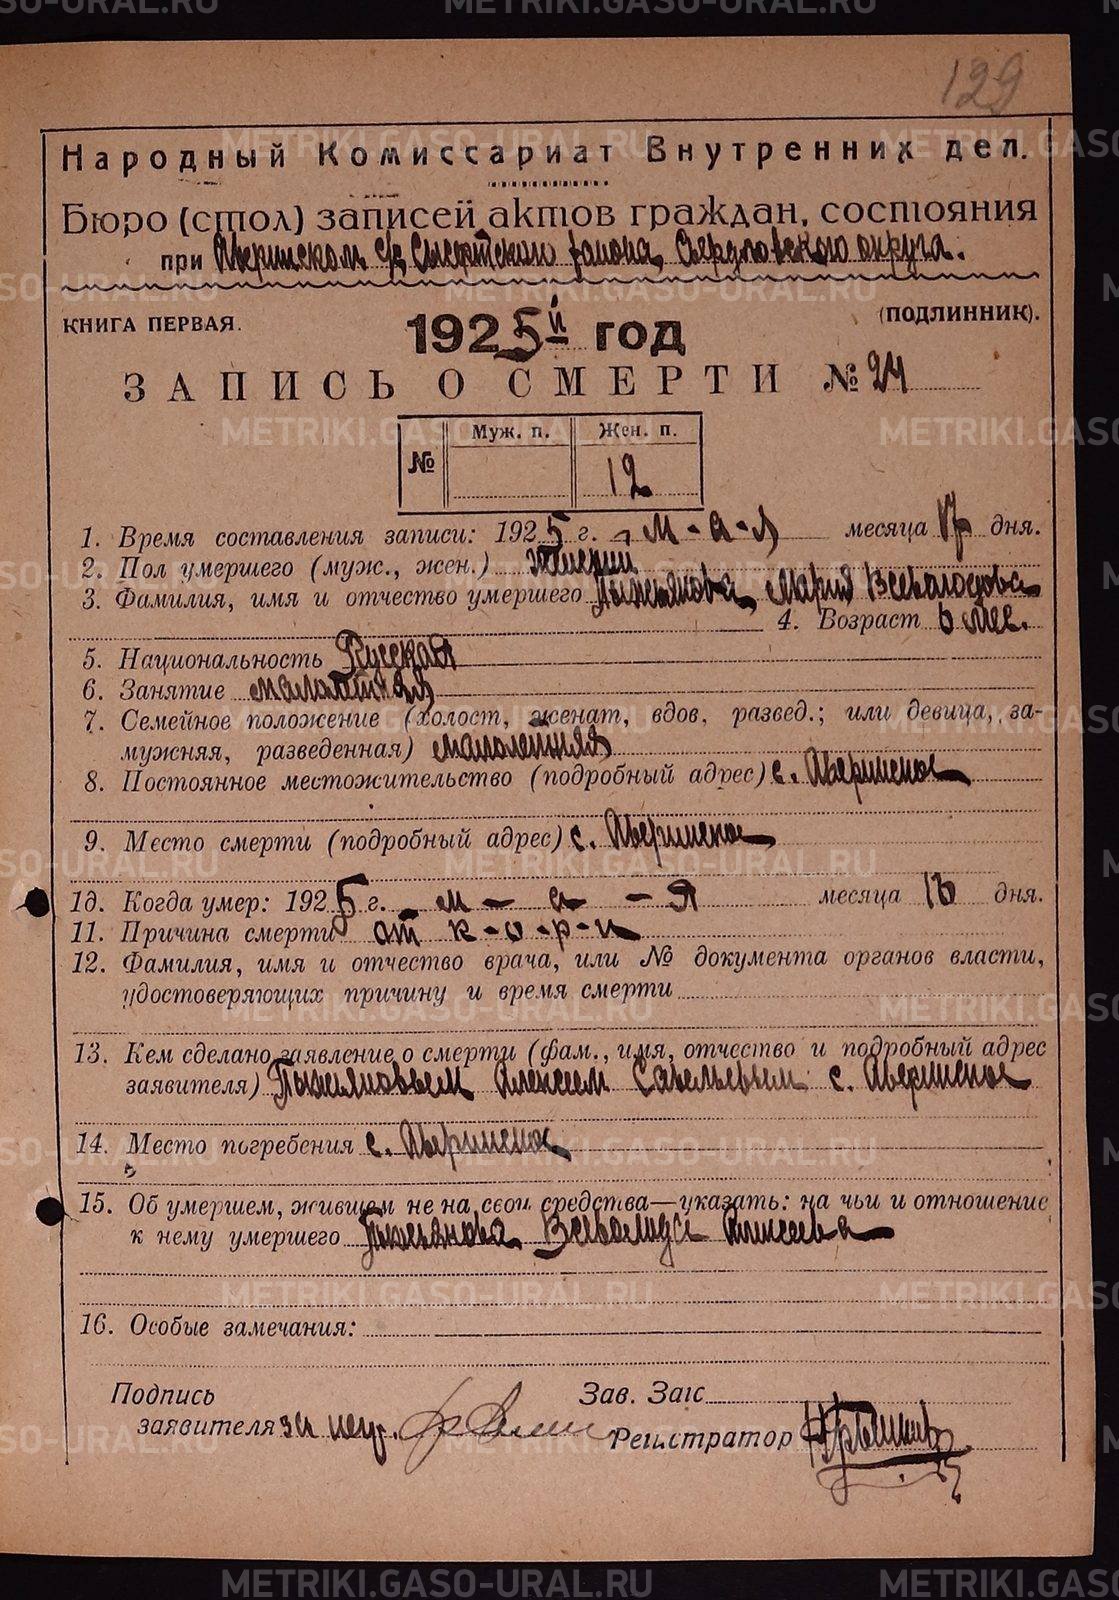 129
Народный Комиссариат Внутренних дел.
Бюро (стол) записей актов граждан, состояния
при Аверинском с/с, Сысертского района, Свердловского округа.
КНИГА ПЕРВАЯ. 1925й год (подлинник).
ЗАПИСЬ О СМЕРТИ № 24
Муж. п. Жен. п.
№ 12
1. Время составления записи: 1925 г. м-а-я месяца 17 дня.
2. Пол умершего (муж., жен.) женский
3. Фамилия, имя и отчество умершего Пыжьянова, Мария Всевологодова
4. Возраст 6 мес.
5. Национальность Русская
6. Занятие малолетняя
7. Семейное положение (холост, женат, вдов, развед.; или девица, за-
мужняя, разведенная) малолетняя
8. Постоянное местожительство (подробный адрес) с. Аверинское
9. Место смерти (подробный адрес) с. Аверинское
10. Когда умер: 1925 г. м-а-я месяца 16 дня.
11. Причина смерти от к-о-р-и
12. Фамилия, имя и отчество врача, или № документа органов власти,
удостоверяющих причину и время смерти
13. Кем сделано заявление о смерти (фам., имя, отчество и подробный адрес
заявителя) Пыжьяновым Алексеем Савельевым с. Аверинское
14. Место погребения с. Аверинское
15. Об умершем, жившем не на свои средства—указать: на чьи и отношение
к нему умершего Пыжьянова Алексеева
16. Особые замечания:
Подпись Зав. Загс
заявителя за негр.
Регистратор
METRIKI.GASO-URAL.RU